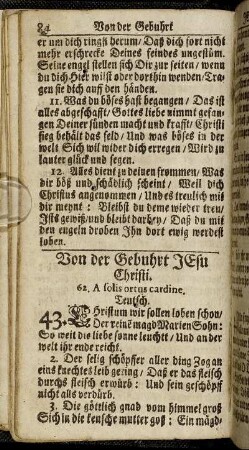 84 Von der Geburt
er um dich rings herum/ Daß dich fort nicht
mehr erschrecke Deines feindes ungestüm.
Seine engel stellen sich Dir zur seiten/ wenn
du dich Hier wilst oder dorthin wenden/ Tra-
gen sie dich auf den händen.
11. Was du böses hast begangen/ Das ist
alles abgeschafft/ Gottes liebe nimmt gefan-
gen Deiner sünden macht und krafft/ Christi
sieg behält das feld/ Und was böses in der
welt Sich wil wider dich erregen/ Wird zu
lauter glück und segen.
12. Alles dient zu deinen frommen/ Was
dir bös und schädlich scheint/ Weil dich
Christus angenommen/ Und es treulich mit
dir meynt: Bleibst du deme wieder treu/
Ists gewiß/ und bleibt darbey/ Daß du mit
den engeln droben Ihn dort ewig werdest
loben.
Von der Gebuhrt JEsu
Christi.
62. A solis ortus cardine.
Teutsch.
43. CHristum wir sollen loben schon/
Der reine magd Marien Sohn:
So weit die liebe sonne leucht/ Und an der
welt ihr ende reicht.
2. Der selig schöpffer aller ding Zog an
eins knechtes leib gering/ Daß er das fleisch
durchs fleisch erwürb: Und sein geschöpf
nicht als verdürb.
3. Die göttlich gnad vom himmel groß
Sich in die keusche mutter goß: Ein mägd-